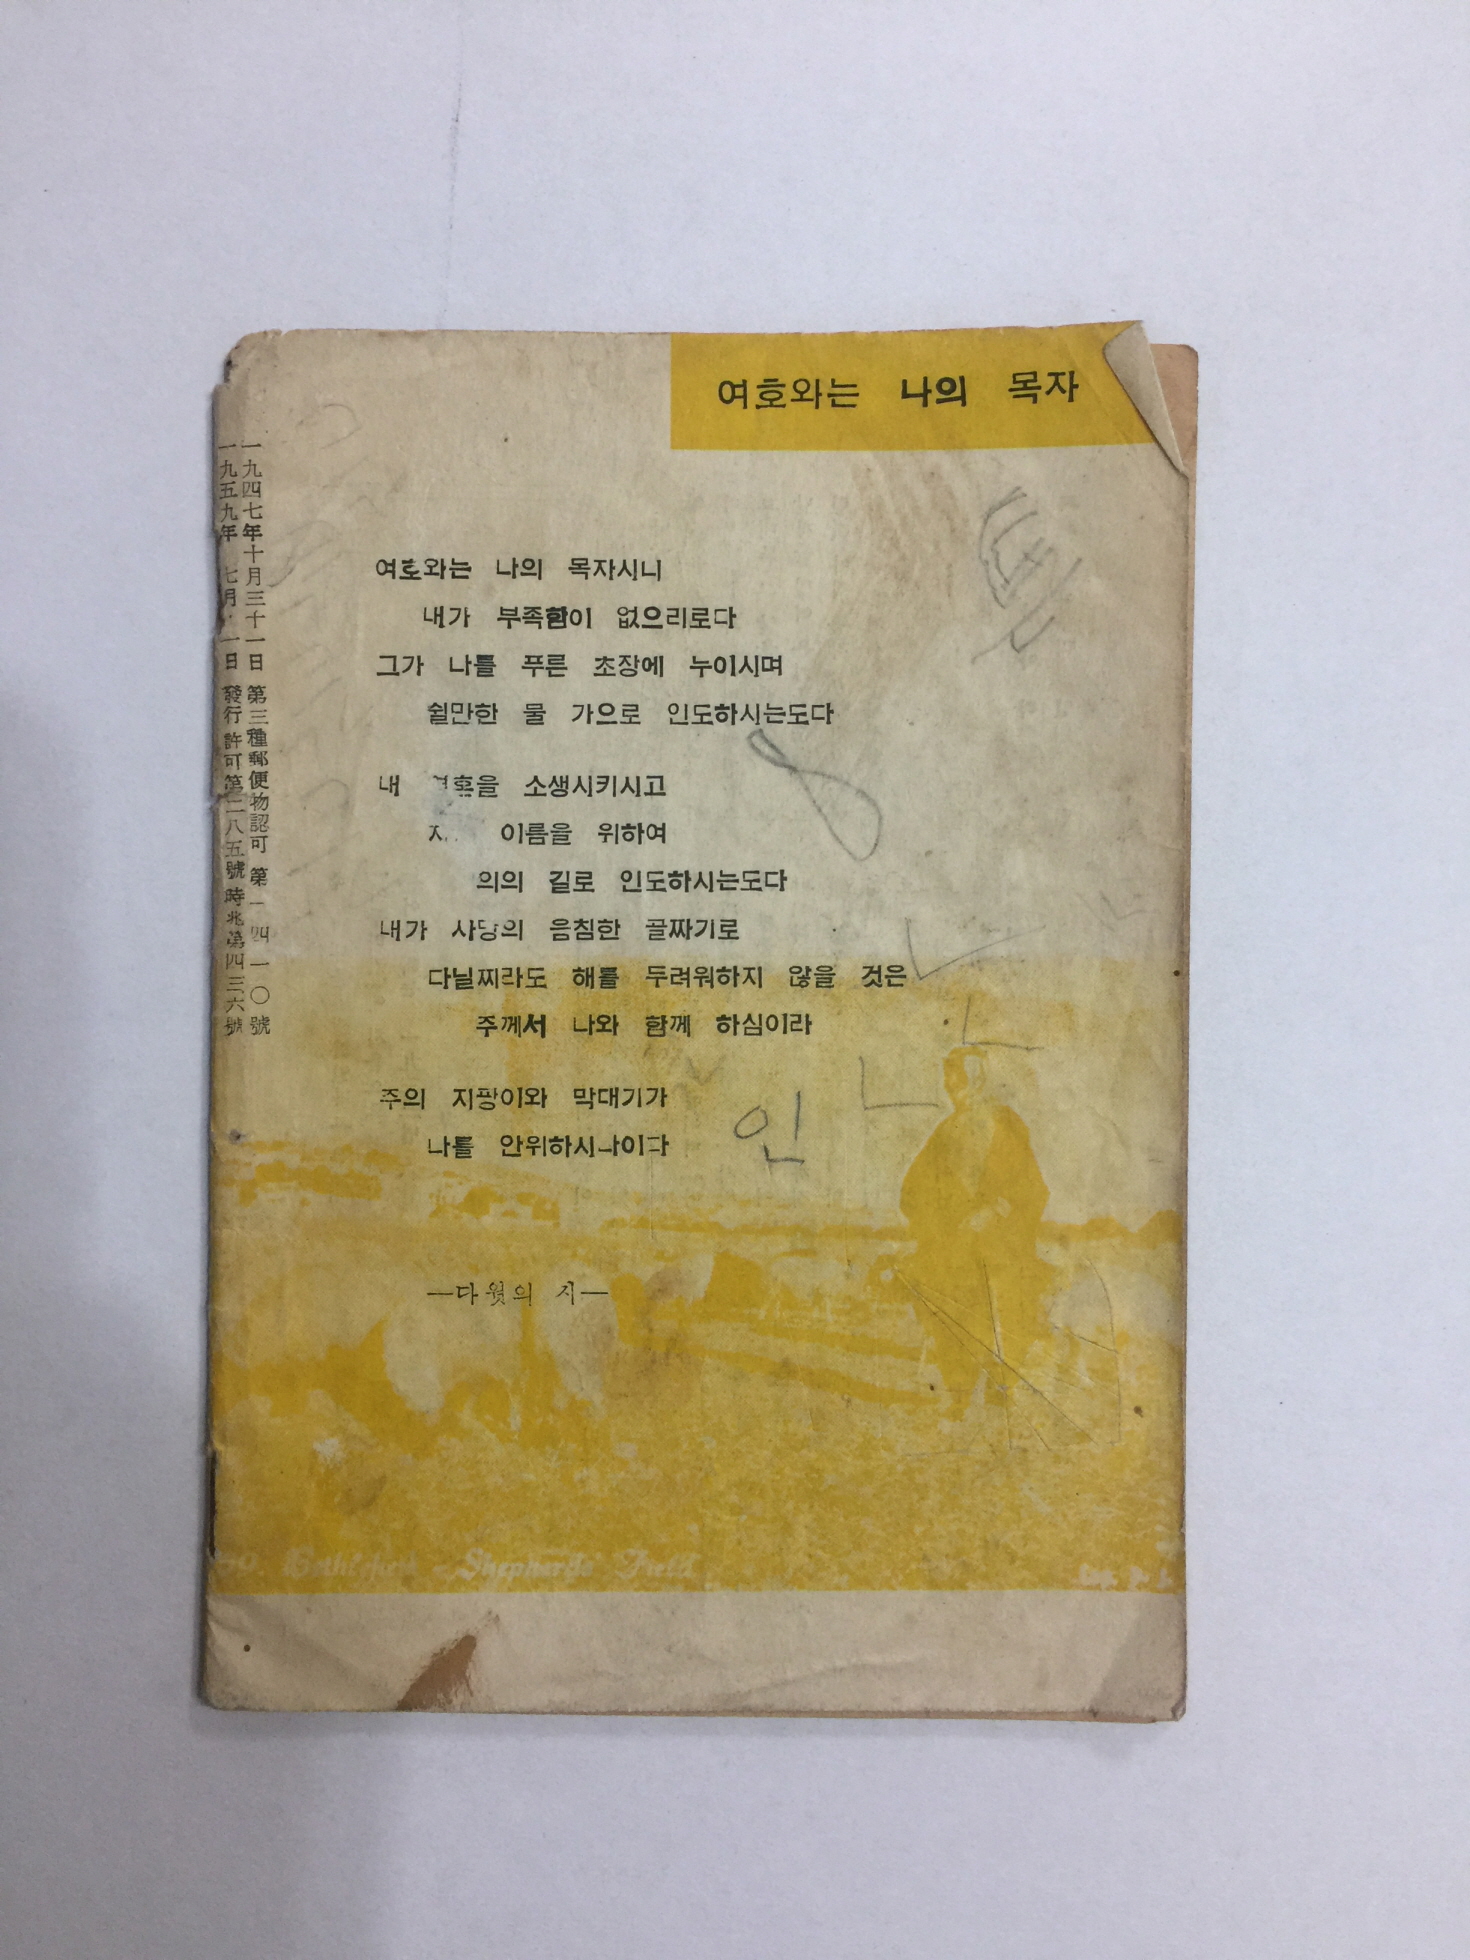 여호와는 나의 목자
一九四七年十月三十一日 第三種郵便物認可 第一四一〇號
一九五九年 七月 一日 發行 許可第二八五號 時兆第四三六號
여호와는 나의 목자시니
내가 부족함이 없으리로다
그가 나를 푸른 초장에 누이시며
쉴만한 물 가으로 인도하시는도다
내 소생시키시고
이름을 위하여
의의 길로 인도하시는도다
내가 사망의 음침한 골짜기로
다닐찌라도 해를 두려워하지 않을 것은
주께서 나와 함께 하심이라
주의 지팡이와 막대기가
나를 안위하시나이다
인
—다윗의 시—
Bethlehem - Shepherds' Field